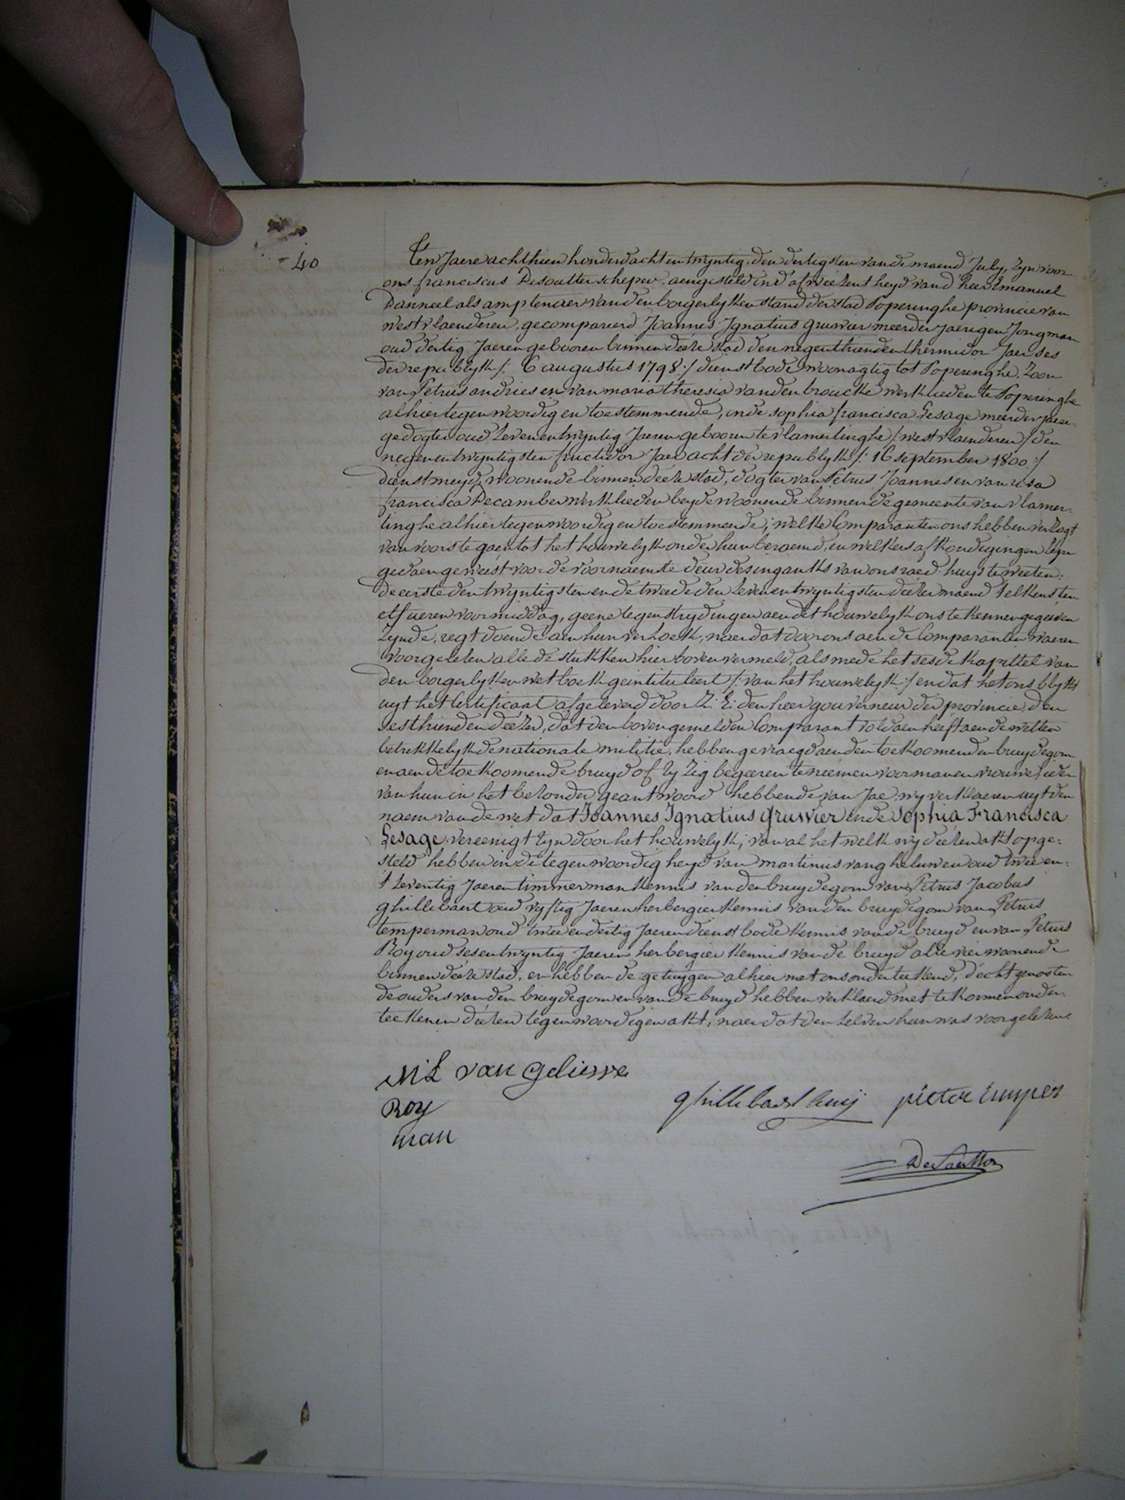 40
Ten Jaere achthien honderd acht en twyntig, den dertigsten van de maend July, zyn voor
ons franciscus Desoutter schepen, aengesteld in d'afweezens heyd van d'heer Emanuel
Danneel als amptenaer van den borgerlyken stand der stad Poperinghe provincie van
westvlaenderen, gecompareerd Joannes Ignatius Gruwier meerderjaerigen Jongman
oud dertig Jaeren geboren binnen deeze stad den negenthienden thermidor Jaer ses
der republyk /: 6 augustus 1798 :/ dienstbode woonagtig tot Poperinghe, Zoon
van Petrus andries en van maria theresia vanden broucke werklieden te Poperinghe
alhier tegenwoordig en toestemmende, ende sophia francisca Lesage meerderjaeri-
ge dogter oud zeven en twyntig Jaeren geboren te vlamertinghe /westvlaenderen/ den
negen en twyntigsten fructidor Jaer acht der republyk /: 16 september 1800 :/
dienstmeyd, woonende binnen deeze stad, dogter van Petrus Joannes en van rosa
francisca Decamber werklieden beyde woonende binnen de gemeente van vlamer-
tinghe alhier tegenwoordig en toestemmende; welke Comparanten ons hebben verzogt
van voorste gaen tot het houwelyk onder hun beraemd, en welkers afkondigingen zyn
gedaen geweest voor de voornaemste deure des ingangks van ons raed huys te weeten:
de eerste den twyntigsten en de tweede den zeven en twyntigsten dezer maend telkens ten
elf ueren voormiddag, geene tegenstrydingen aen dit houwelyk ons te kennen gegeven
zynde, regt doende aen hun verzoek, naer dat door ons aen de Comparanten waeren
voorgelezen alle de stukken hier boven vermeld, als mede het sesde kapittel van
den borgerlyken wetboek geintituleert /: van het houwelyk :/ en dat het ons blykt
uyt het Certificaet afgeleverd door Z: E: den heer gouverneur der provincie den
sesthienden dezer, dat den bovengemelden Comparant voldaen heeft aen de wetten
betrekkelyk de nationale militie, hebben gevraegd aen den toekoomenden bruydegom
en aen de toekoomende bruyd of zy zig begeeren te neemen voor man en vrouwe, ieder
van hun in het bezonder geantwoord hebbende van Jae, wy verklaeren uyt den
naem van de wet dat Joannes Ignatius Gruwier ende Sophia Francisca
Lesage vereenigt zyn door het houwelyk; van al het welk wy dezen akt opge-
steld hebben in de tegenwoordigheyd van martinus vangheluwen oud twee en
't zeventig Jaeren timmerman kennis van den bruydegom van Petrus Jacobus
ghillebaert oud vyftig Jaeren herbergier kennis van den bruydegom van Petrus
temperman oud twee en dertig Jaeren dienstbode kennis van de bruyd en van Petrus
Roy oud ses en twyntig Jaeren herbergier kennis van de bruyd alle vier woonende
binnen deeze stad, en hebben de getuygen alhier met ons onderteekend, d'echtgenooten
de ouders van den bruydegom en van de bruyd hebben verklaerd niet te konnen onder-
teekenen dezen tegenwoordigen akt, naer dat den zelven hun was voorgelezen
Roy
ghillebaert
pieter
man
Desoutter